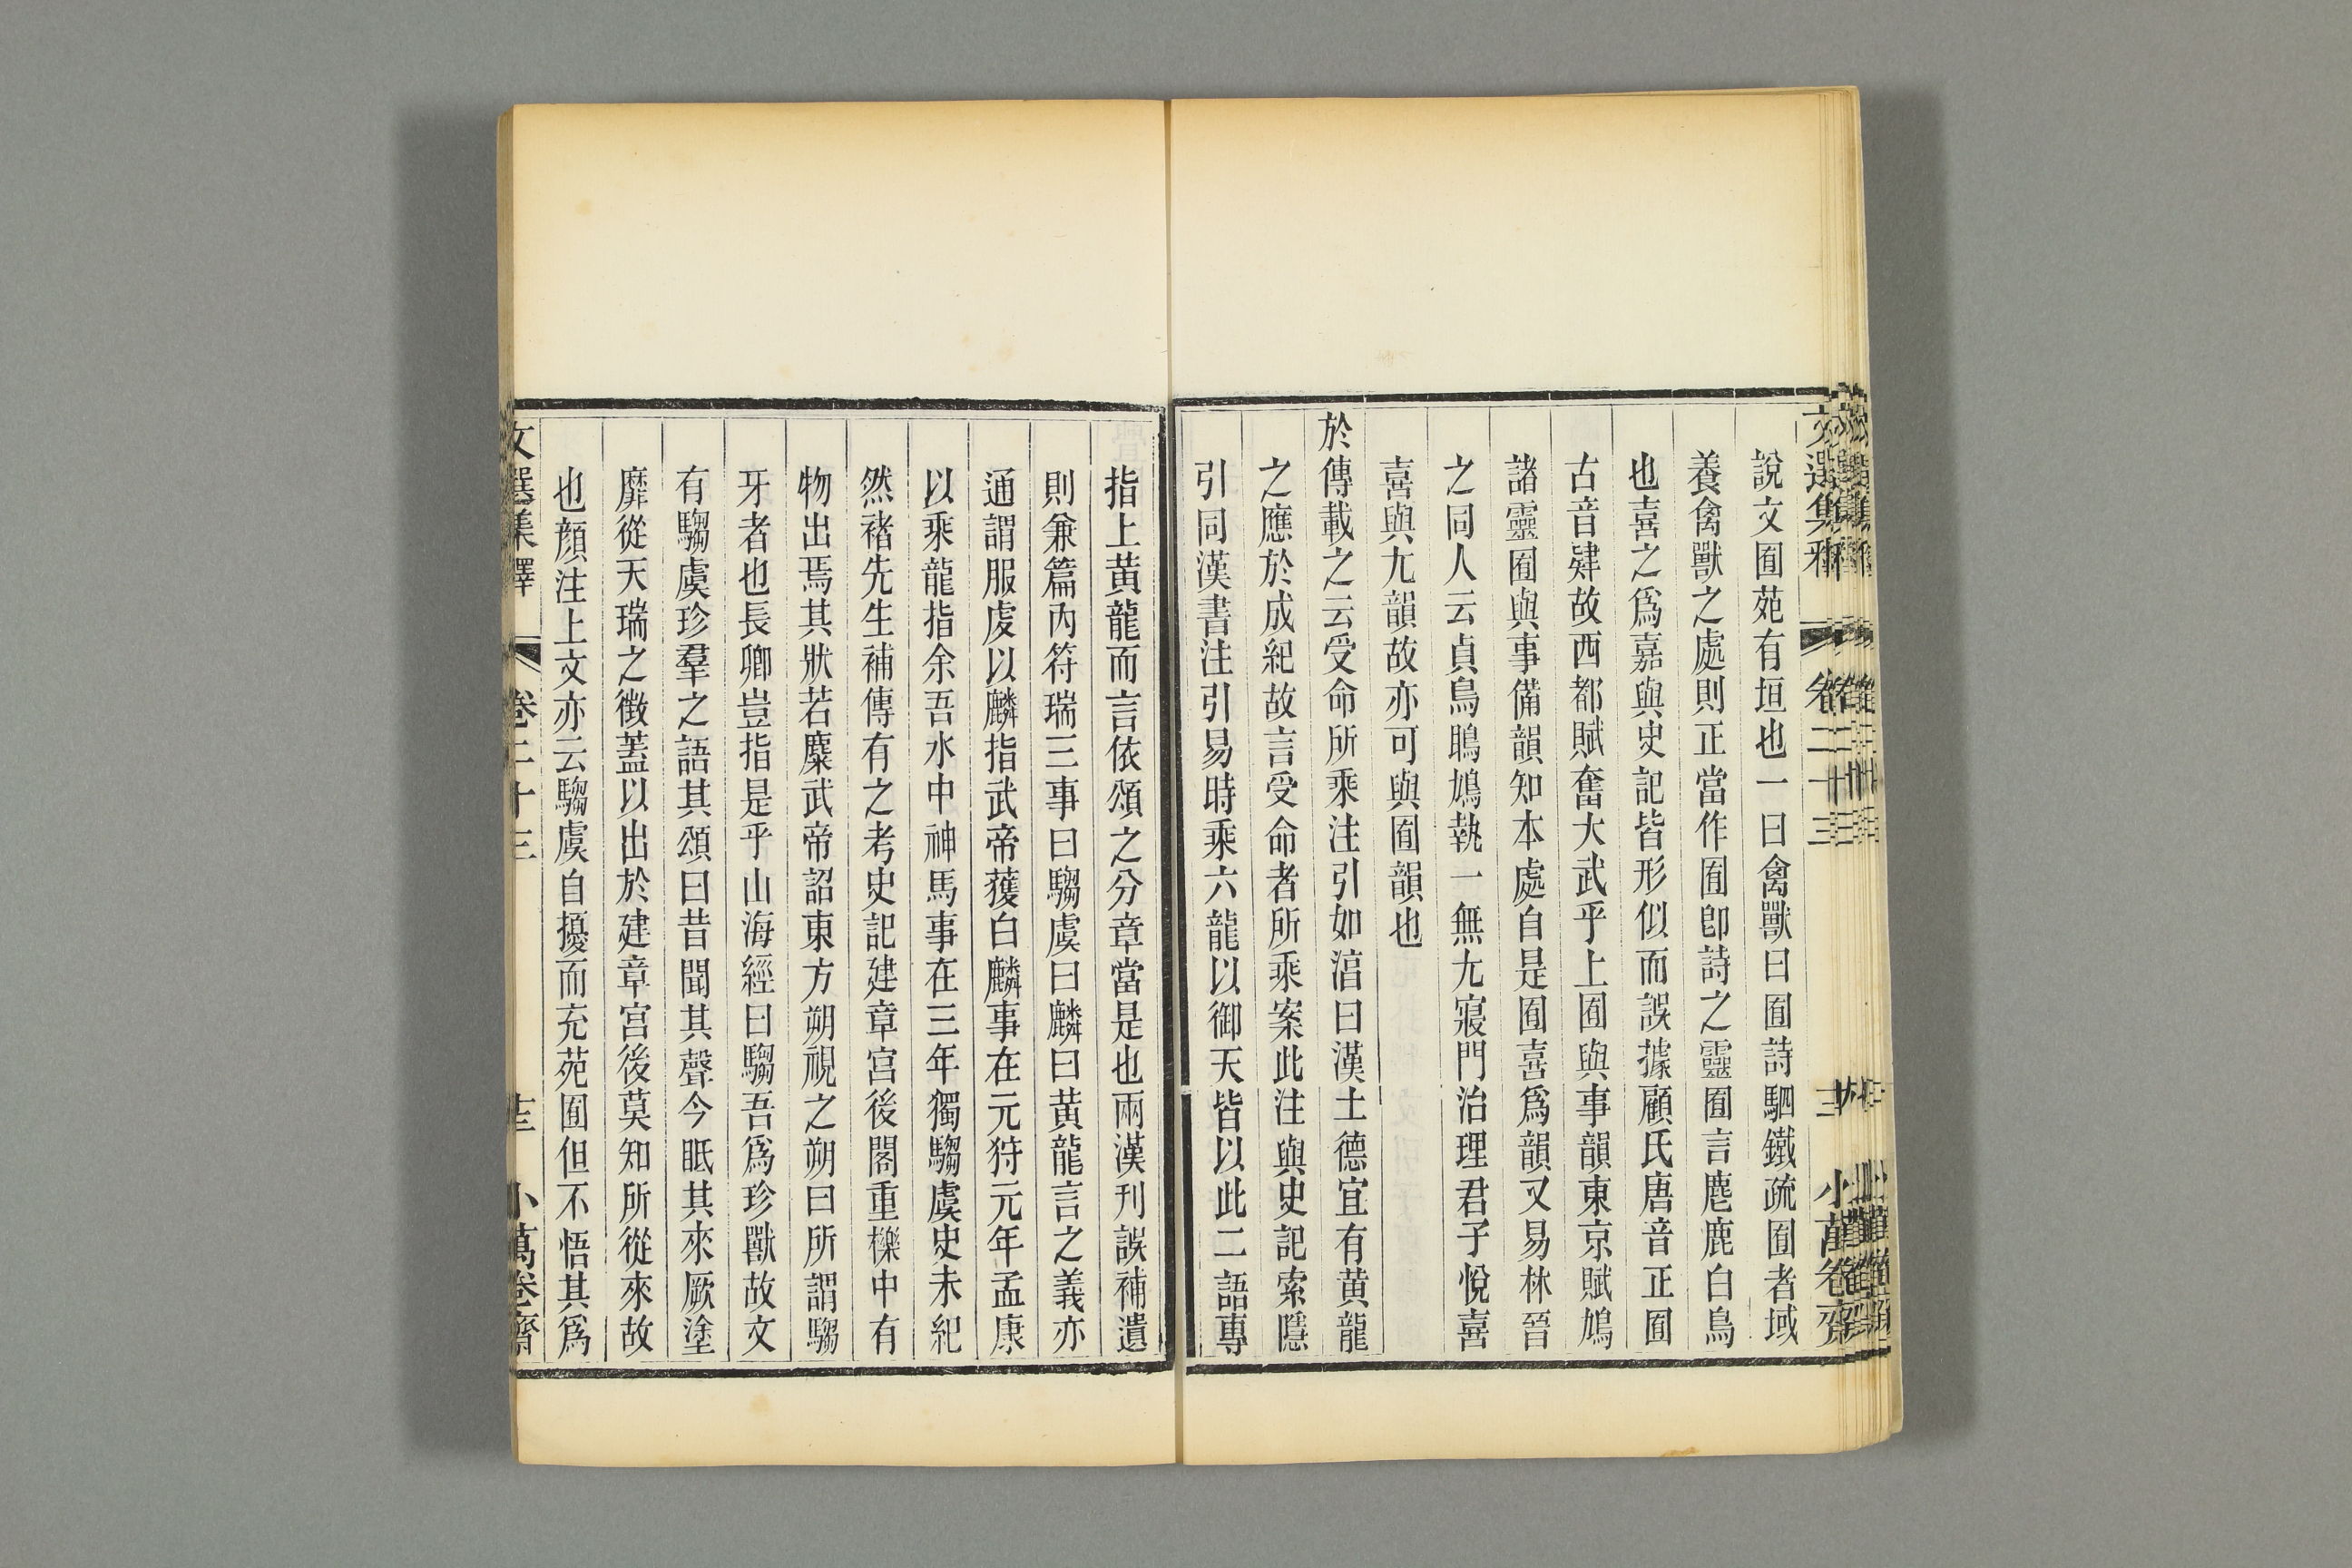 文選集釋 卷二十三 小萬卷齋
說文囿苑有垣也一曰禽獸曰囿詩駟鐵疏囿者域
養禽獸之處則正當作囿卽詩之靈囿言麀鹿白鳥
也喜之爲嘉與史記皆形似而誤據顧氏唐音正囿
古音肄故西都賦奮大武乎上囿與事韻東京賦鳩
諸靈囿與事備韻知本處自是囿喜爲韻又易林晉
之同人云貞鳥鵙鳩執一無尤寢門治理君子悅喜
喜與尤韻故亦可與囿韻也
於傳載之云受命所乘注引如淳曰漢土德宜有黄龍
之應於成紀故言受命者所乘案此注與史記索隱
引同漢書注引易時乘六龍以御天皆以此二語專
指上黄龍而言依頌之分章當是也兩漢刊誤補遺
則兼篇內符瑞三事曰騶虞曰麟曰黄龍言之義亦
通謂服虔以麟指武帝獲白麟事在元狩元年孟康
以乘龍指余吾水中神馬事在三年獨騶虞史未紀
然褚先生補傳有之考史記建章宮後閣重櫟中有
物出焉其狀若麋武帝詔東方朔視之朔曰所謂騶
牙者也長卿豈指是乎山海經曰騶吾爲珍獸故文
有騶虞珍羣之語其頌曰昔聞其聲今眂其來厥塗
靡從天瑞之徵蓋以出於建章宮後莫知所從來故
也顏注上文亦云騶虞自擾而充苑囿但不悟其爲
文選集釋 卷二十三 小萬卷齋